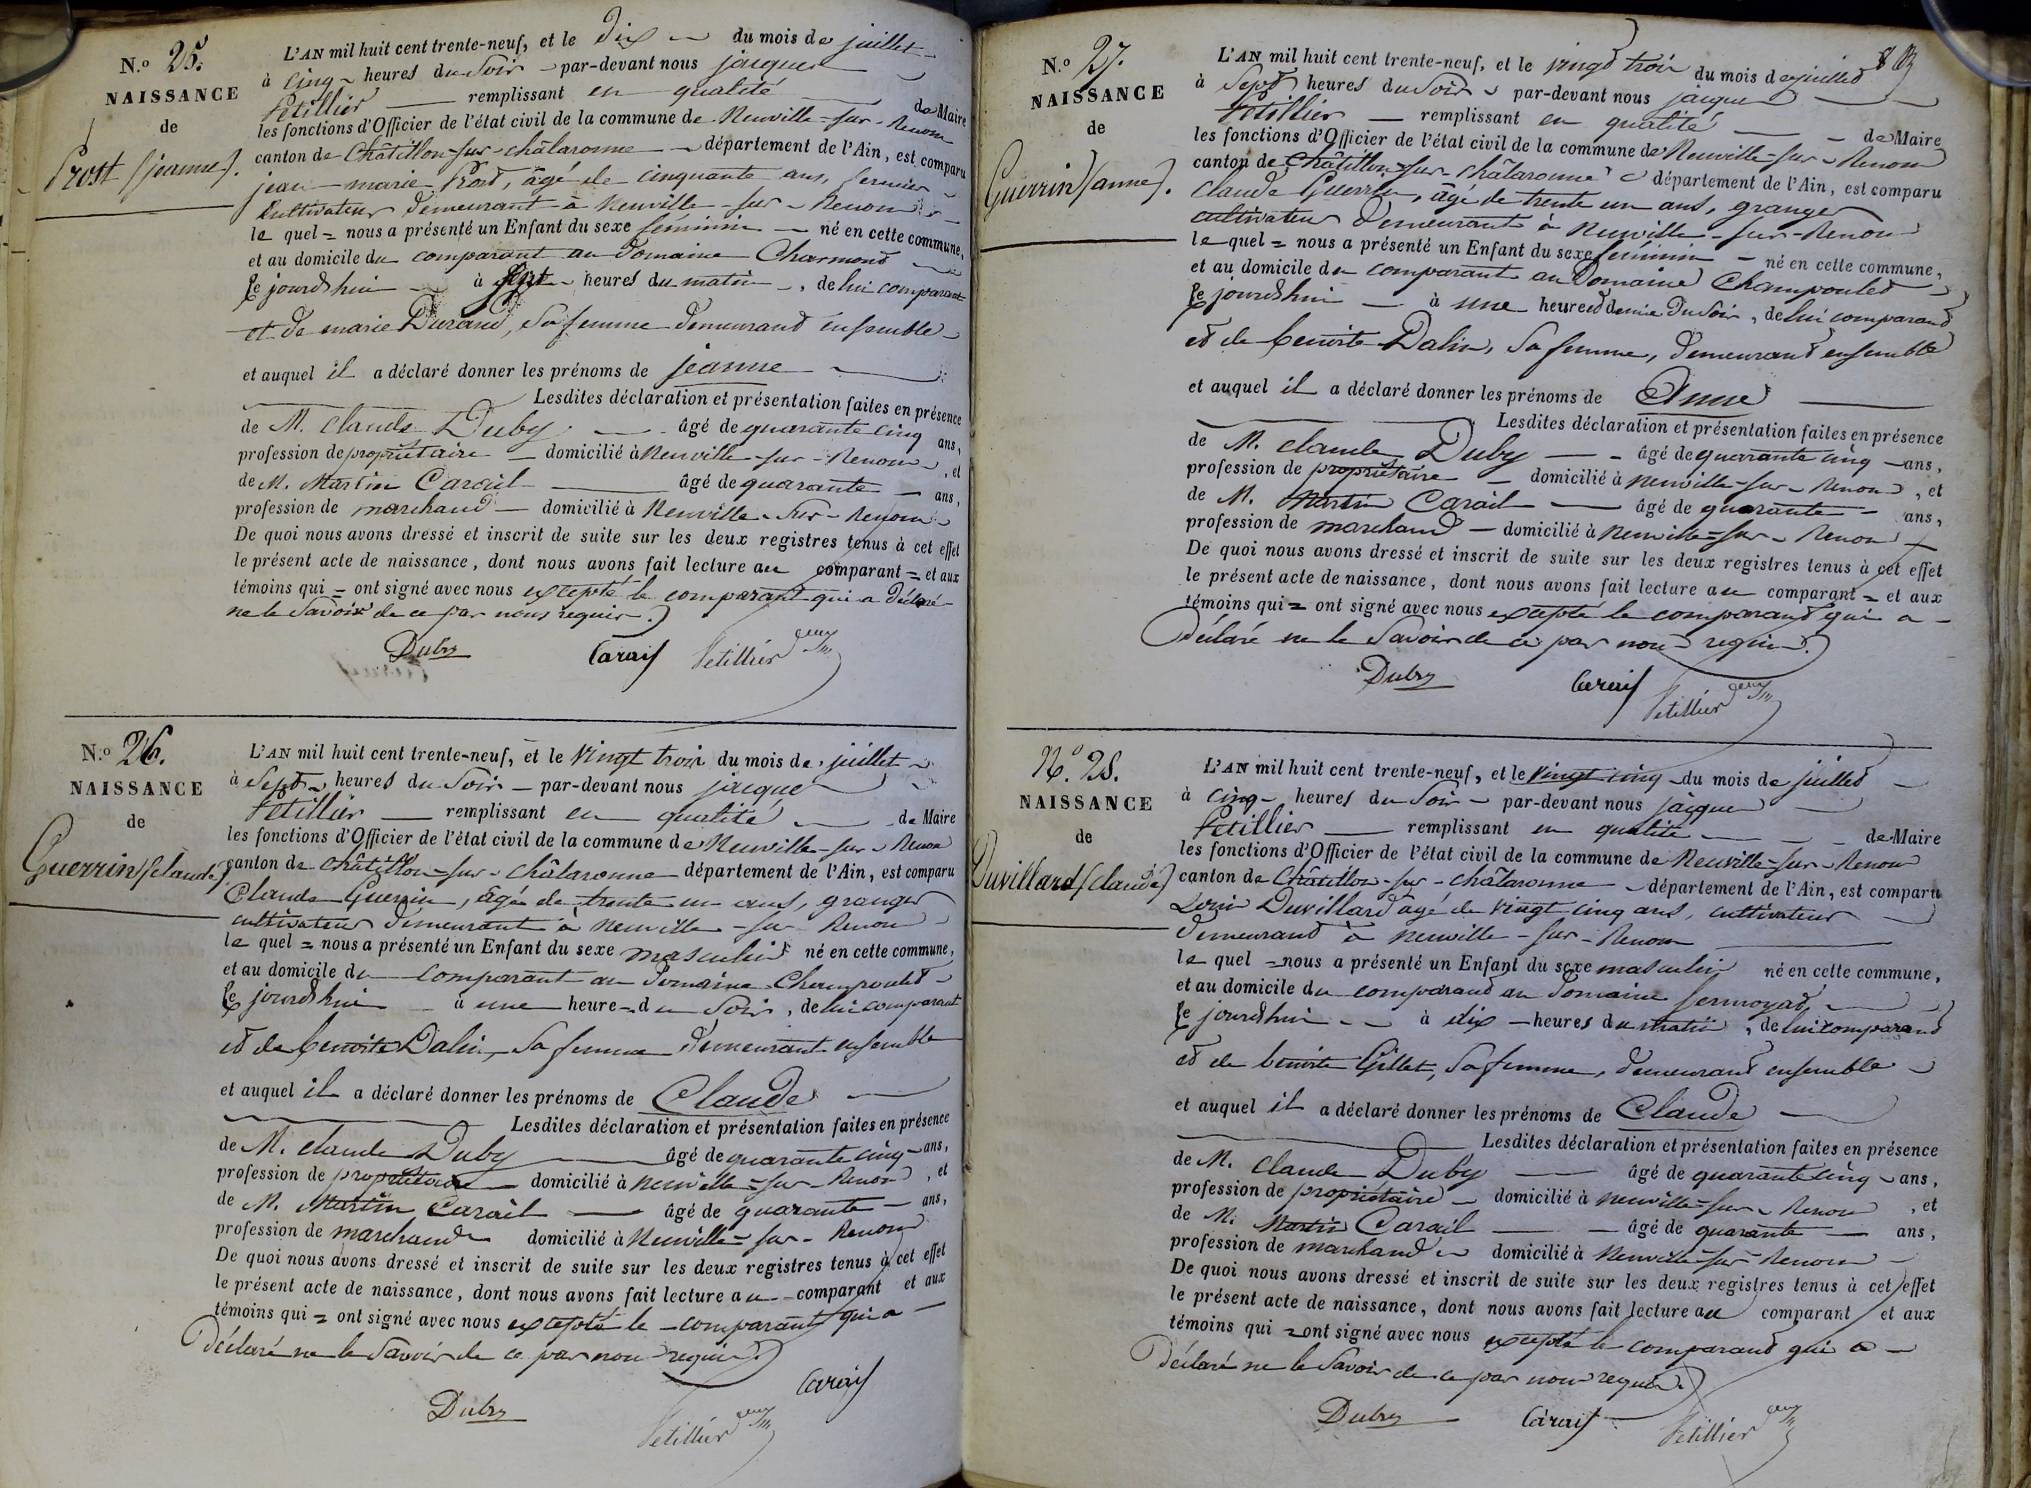 N.o 25.
NAISSANCE
de
Prost (jeanne).
L'AN mil huit cent trente-neuf, et le dix du mois de juillet
à cinq heures du Soir par-devant nous jacques
Petillier remplissant en qualité de Maire
les fonctions d'Officier de l'état civil de la commune de Neuville-sur-Renom
canton de Châtillon-sur-châlaronne département de l'Ain, est comparu
jean-marie Prost, âgé de cinquante ans, fermier
cultivateur demeurant à Neuville-sur-Renom
le quel = nous a présenté un Enfant du sexe féminin né en cette commune,
et au domicile du comparant au domaine Charmond
ce jourd'hui à sept heures du matin, de lui comparant
et de marie Durand, sa femme demeurand ensemble
et auquel il a déclaré donner les prénoms de jeanne
Lesdites déclaration et présentation faites en présence
de M. claude Duby âgé de quarante cinq ans,
profession de propriétaire domicilié à Neuville-sur-Renom, et
de M. Martin Carail âgé de quarante ans,
profession de marchand domicilié à Neuville-sur-Renom
De quoi nous avons dressé et inscrit de suite sur les deux registres tenus à cet effet
le présent acte de naissance, dont nous avons fait lecture au comparant = et aux
témoins qui = ont signé avec nous excepté le comparant qui a déclaré
ne le Savoir de ce par nous requis.)
Duby Carail Petillier
N.o 26.
NAISSANCE
de
Guerrin (claude)
L'AN mil huit cent trente-neuf, et le vingt trois du mois de juillet
à Sept heures du Soir par-devant nous jacques
Petillier remplissant en qualité de Maire
les fonctions d'Officier de l'état civil de la commune de Neuville-sur-Renom
canton de châtillon-sur-châlaronne département de l'Ain, est comparu
Claude Guerrin, âgé de trente un ans, granger
cultivateur demeurant à Neuville-sur-Renom
le quel = nous a présenté un Enfant du sexe masculin né en cette commune,
et au domicile du comparant au domaine Champoulet
ce jourd'hui à une heure = du Soir, de lui comparant
et de benoite Dalin, Sa femme demeurant ensemble
et auquel il a déclaré donner les prénoms de Claude
Lesdites déclaration et présentation faites en présence
de M. claude Duby âgé de quarante cinq ans,
profession de propriétaire domicilié à Neuville-sur-Renom, et
de M. Martin Carail âgé de quarante ans,
profession de marchand domicilié à Neuville-sur-Renom
De quoi nous avons dressé et inscrit de suite sur les deux registres tenus à cet effet
le présent acte de naissance, dont nous avons fait lecture au comparant et aux
témoins qui = ont signé avec nous excepté le comparant qui a
déclaré ne le Savoir de ce par nous requis.)
Duby Petillier Carail
N.o 27.
NAISSANCE
de
Guerrin (anne).
L'AN mil huit cent trente-neuf, et le vingt trois du mois de juillet
à Sept heures du Soir par-devant nous jacques
Petillier remplissant en qualité de Maire
les fonctions d'Officier de l'état civil de la commune de Neuville-sur-Renom
canton de Châtillon-sur-châlaronne département de l'Ain, est comparu
Claude Guerrin, âgé de trente un ans, granger
cultivateur demeurant à Neuville-sur-Renom
le quel = nous a présenté un Enfant du sexe féminin né en cette commune,
et au domicile du comparant au Domaine Champoulet
ce jourd'hui à une heure et demie Du Soir, de lui comparand
et de benoite Dalin, Sa femme, demeurand ensemble
et auquel il a déclaré donner les prénoms de Anne
Lesdites déclaration et présentation faites en présence
de M. claude Duby âgé de quarante cinq ans,
profession de propriétaire domicilié à Neuville-sur-Renom, et
de M. Martin Carail âgé de quarante ans,
profession de marchand domicilié à Neuville-sur-Renom
De quoi nous avons dressé et inscrit de suite sur les deux registres tenus à cet effet
le présent acte de naissance, dont nous avons fait lecture au comparant = et aux
témoins qui = ont signé avec nous excepté le comparand qui a
déclaré ne le Savoir de ce par nous requis.)
Duby Carail Petillier
N.o 28.
NAISSANCE
de
Duvillard (claude)
L'AN mil huit cent trente-neuf, et le vingt cinq du mois de juillet
à cinq heures du Soir par-devant nous jacques
Petillier remplissant en qualité de Maire
les fonctions d'Officier de l'état civil de la commune de Neuville-sur-Renom
canton de Châtillon-sur-châlaronne département de l'Ain, est comparu
Louis Duvillard agé de vingt cinq ans, cultivateur
demeurand à Neuville-sur-Renom
le quel = nous a présenté un Enfant du sexe masculin né en cette commune,
et au domicile du comparand au domaine
ce jourd'hui à dix heures du matin, de lui comparand
et de benoite Gillet, Sa femme, demeurand ensemble
et auquel il a déclaré donner les prénoms de Claude
Lesdites déclaration et présentation faites en présence
de M. claude Duby âgé de quarante cinq ans,
profession de propriétaire domicilié à Neuville-sur-Renom, et
de M. Martin Carail âgé de quarante ans,
profession de marchand domicilié à Neuville-sur-Renom
De quoi nous avons dressé et inscrit de suite sur les deux registres tenus à cet effet
le présent acte de naissance, dont nous avons fait lecture au comparant et aux
témoins qui = ont signé avec nous excepté le comparand qui a
déclaré ne le Savoir de ce par nous requis.)
Duby Carail Petillier